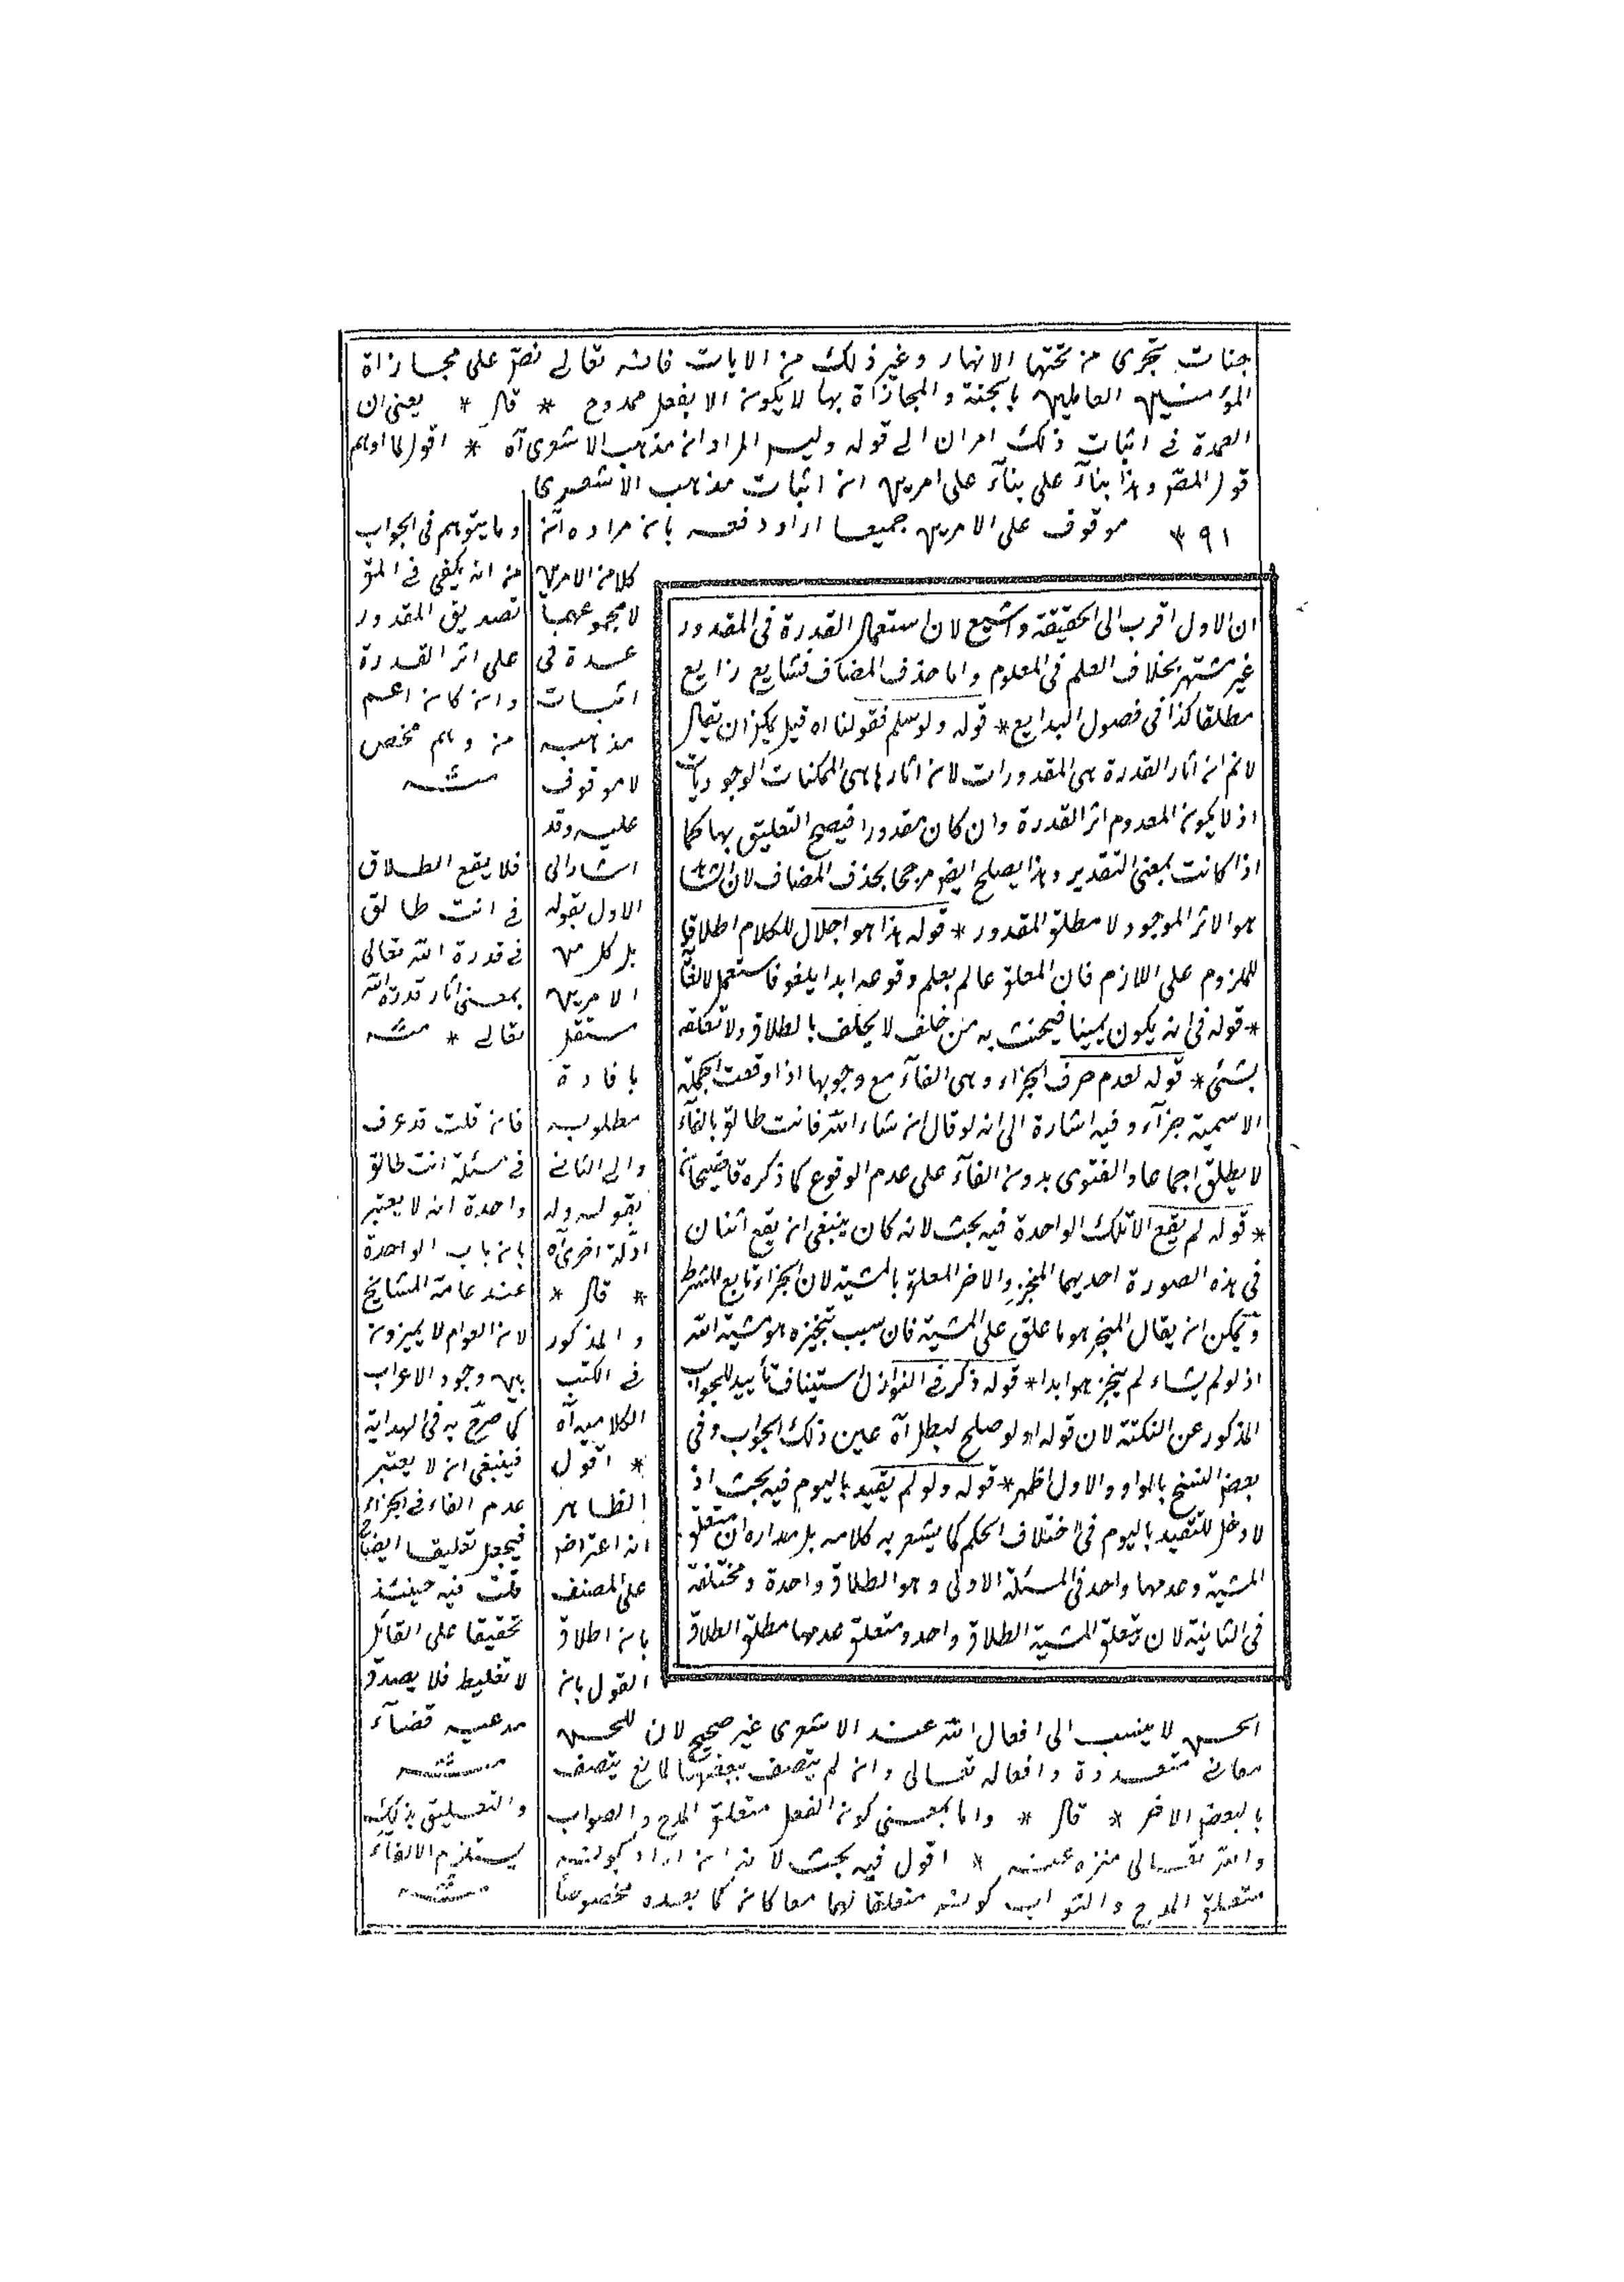 جنات تجرى من تحتها الانهار وغير ذلك من الايات فانه تعالى نص على مجازاة
المؤمنين العاملين بالجنة والمجازاة بها لا يكون الا بفعل ممدوح * قال * يعنى ان
العمدة فى اثبات ذلك امران الى قوله وليس المراد ان مذهب الاشعرى آه * اقول لما اوهم
قول المص وهذا بناء على بناء على امرين ان اثبات مذهب الاشعرى
٣٩١ موقوف على الامرين جميعا اراد دفعه بان مراده ان
كلا من الامرين
لا مجموعهما
عمدة فى
اثبات
مذهبه
لا موقوف
عليه وقد
اشار الى
الاول بقوله
بل كل من
الامرين
مستقل
بافادة
مطلوبه
والى الثانى
بقوله وله
ادلة اخرى آه
* قال *
والمذكور
فى الكتب
الكلامية آه
* اقول
الظاهر
انه اعتراض
على المصنف
بان اطلاق
القول بان
الحسن لا ينسب الى افعال الله عند الاشعرى غير صحيح لان للحسن
معانى متعددة وافعاله تعالى وان لم يتصف ببعضها لمانع يتصف
بالبعض الاخر * قال * واما بمعنى كون الفعل متعلق المدح والصواب
والله تعالى منزه عنه * اقول فيه بحث لانه ان اراد بكونه
متعلق المدح والثواب كونه متعلقا لهما معا كان كما بعده مخصوصا
ان الاول اقرب الى الحقيقة واشيع لان استعمال القدرة فى المقدور
غير مشتهر بخلاف العلم فى المعلوم واما حذف المضاف فشايع ذايع
مطلقا كذا فى فصول البدايع * قوله ولو سلم فقولنا اه قيل يمكن ان يقال
لانم ان اثار القدرة هى المقدورات لان اثارها هى الممكنات الوجوديات
اذ لا يكون المعدوم اثر القدرة وان كان مقدورا فيصح التعليق بها كما
اذا كانت بمعنى التقدير وهذا يصلح ايضا مرجحا بحذف المضاف لان
هو الاثر الموجود لا مطلق المقدور * قوله هذا هو اجلال للكلام اطلاقا
للملزوم على اللازم فان المعلق عالم بعلم وقوعه ابدا يلغو فاستعمل
* قوله فى انه يكون يمينا فيحنث به من حلف لا يحلف بالطلاق ولا تعلقه
بشئ * قوله لعدم حرف الجزاء وهى الفاء مع وجوبها اذا وقعت الجملة
الاسمية جزاء وفيه اشارة الى انه لو قال ان شاء الله فانت طالق بالفاء
لا يطلق اجماعا والفتوى بدون الفاء على عدم الوقوع كما ذكره قاضيخان
* قوله لم يقع الا تلك الواحدة فيه بحث لانه كان ينبغى ان يقع اثنان
فى هذه الصورة احديهما المنجز والاخر المعلق بالمشية لان الجزاء تابع للشرط
ويمكن ان يقال المنجز هو ما علق على المشية فان سبب تنجيزه هو مشية الله
اذ لو لم يشاء لم ينجز هو ابدا * قوله ذكر فى النوازل استيناف تأييد للجواب
المذكور عن النكتة لان قوله او لو صلح لبطل آه عين ذلك الجواب وفى
بعض النسخ بالواو والاول اظهر * قوله ولو لم يقيد باليوم فيه بحث اذ
لا دخل للتقييد باليوم فى اختلاف الحكم كما يشعر به كلامه بل مداره ان متعلق
المشية وعدمها واحد فى المسئلة الاولى وهو الطلاق واحدة ومختلفة
فى الثانية لان متعلق المشية الطلاق واحد ومتعلق عدمها مطلق الطلاق
وما يتوهم فى الجواب
من انه يكفى فى
تصديق المقدور
على اثر القدرة
وان كان اعم
من وهم مخص
منه
فلا يقع الطلاق
فى انت طالق
فى قدرة الله تعالى
بمعنى اثار قدرة الله
تعالى * منه
فان قلت قد عرف
فى مسئلة انت طالق
واحدة انه لا يعتبر
بان باب الواحدة
عند عامة المشايخ
لان العوام لا يميزون
بين وجوه الاعراب
كما صرح به فى الهداية
فينبغى ان لا يعتبر
عدم الفاء فى الجزاء
فيجعل تعليقا ايضا
قلت فيه حينئذ
تحقيقا على القائل
لا تغليظ فلا يصدق
مدعيه قضاء
منه
والتعليق بذلك
يستلزم الالغاء
منه